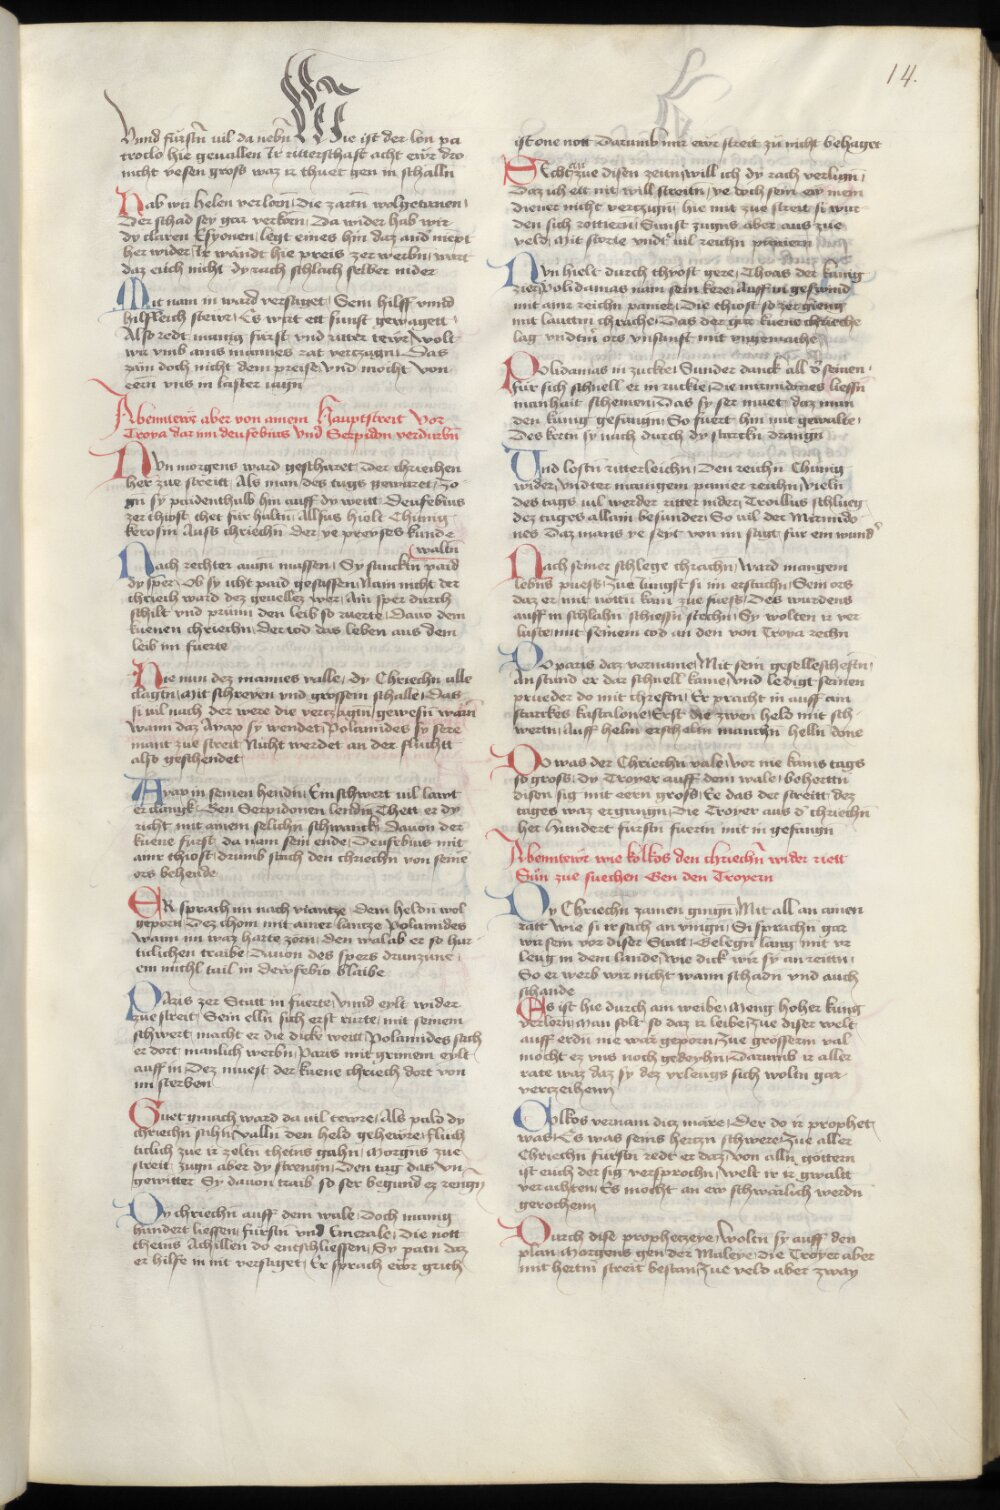 14.
Vnnd fürstn̄ uil da nebn̄ Wie ist der lon pa
troclo hie geuallen Ir ritterschaft acht ewr dro
nicht vesen gross waz ir thuet gen in schalln̄
Hab wir helen verlorn Die zartn̄ wolgetanen
Der schad sey gar verkorn Da wider hab wir
dy claren Esyonen legt eines hin daz and̄ mept
her wider Ir wandt hie preis zer werbn̄ wart
daz euch nicht dy rach schlach selber nider
Mit nam in ward versaget Sein hilff vnnd
hilffleich stewr Es wirt ett sunst gewagett
Also redt manig fürst vnd ritter tewr wolt
wir vmb ains mannes rat vertzagn̄ Das
zam doch nicht dem preise vnd mocht von
eern vns in laster iagn̄
Abenntewr aber von ainem Hauptstreit Vor
Troya dar inn deufebius Vnd Serpidon verdurbn̄
Nvn morgens ward gescharet Der chriechen
her zue streitt Als man des tags gewaret Zo
gn̄ sy paidenthalb hin auff dy weitt Deufebius
zer thiost thet für haltn̄ Allsus hielt Chünig
kerosin Auss chriechn̄ der ye preyses kunde
waltn̄
Nach rechter augn̄ massen Sy sancktn̄ paid
dy sper Ob sy icht paid gesassen Nain nicht der
chriech ward dez geuellez wer Ain sper durch
schilt vnd prünn den leib so ruerte Dauo dem
kuenen chriechn̄ Der tod das leben aus dem
leib im fuerte
Nie nun dez mannes valle dy Chriechn̄ alle
clagtn̄ Mit schreyen vnd grossem schalle Das
si uil nach der were die vertzagtn̄ gewesn̄ warn̄
Wann daz Ayax sy wendet Polamides sy sere
mant zue streit Nicht werdet an der fluchtt
also geschendet
Ayax in seinen hendn̄ Ein schwert uil lawt
erclangk Gen Serpidonen lendn̄ Thett er dy
richt mit ainem selichn̄ schwanck Dauon der
kuene fürst da nam sein ende Deufebius mit
ainr thiost drumb stach den chriechn̄ von seine
ors behende
Er sprach im nach viantze dem heldn̄ wol
geporn Dez chom mit ainer lantze Polamides
Wann im waz harte zorn den walab er so hur
tichlichen traibe Dauon des spers drunzune
ein michl tail in Dewfebio blaibe
Paris zer Statt in fuerte Vnnd eylt wider
zue streit Sein elln̄ sich erst rurte mit seinem
schwert macht er die dicke weitt Polamides sach
er dort manlich werbn̄ Paris mit grimem eylt
auff in Dez muest der kuene chriech dort von
im sterben
Guet gmach ward da uil tewre Als pald dy
chriechn̄ sahn̄ Valln̄ den held gehewre fluch
ticlich zue ir zeltn̄ theins gahn̄ Morgns zue
streit zugn aber dy strengn̄ Den tag das vn
gewitter Sy dauon traib so ser begund ez rengn̄
Dy chriechn̄ auff dem wale Doch manig
hundert liessen fürstn̄ vnd Emerale Die nott
theins Achillen do entschliessen Sy patn daz
er hilfe in nit versaget Er sprach ewr grich
ist one nott Darumb mir ewr streit zu nicht behaget
Sechtzue disen zeitn̄ will ich dy rach verlign̄
Daz ich ett nit will streitn̄ ye doch sein ew mein
diener nicht vertzign̄ hie mit zue streit si wur
den sich rottiern Sunst zugns aber aus zue
veld Mit storie vndt' uil reichn panniern
Nvn hielt durch thyost gere Thoas der künig
zier Polidamas nam sein kere Auff in geswind
mit ainr reichn panier Die thiost so zer gieng
mit lauttm̄ chrache Das der gar kuene chrieche
lag vndtm̄ ors vnsanft mit vngemache
Polidamas in zuckte Sunder danck all d' seinen
für sich schnell er in ruckte Die mirmidones liessn̄
manhait scheinen Das sy ser muet daz man
den künig gefangn̄ So fuert hin mit gewalte
Des kertn sy nach durch dy starckn̄ drangn̄
Vnd lostn̄ ritterleichn̄ Den reichn Chünig
wider Vndter manigem panier zeichn̄ Vieln̄
des tags uil werder ritter nider Troillus schlueg
dez tages allain besunder So uil der Mirmido
nes Daz mans ye seyt von im sagt für ein wund'
Nach seiner schlege chrachn̄ Ward mangem
lebns puess Zue iungst si im erstachn̄ Sein ors
daz er mit nöttn̄ kam zue fuess Des wurdens
auff in schlahn schiessn̄ stechn̄ Sy wolten ir ver
luste mit seinem tod an den von Troya rechn̄
Do paris daz vername Mit sein geselleschefftn̄
An stund er dar schnell kame Vnd ledigt seinen
prueder do mit chrefftn̄ Er pracht in auff ain
starckes kastalone Erst die zwen held mit sch
wertn̄ Auff helm erschaltn̄ manchn̄ helln̄ done
Do was der Chriechn̄ vale Vor nie kains tags
so gross Dy Troyer auff dem wale behertn̄
disen sig mit eern gross Ee das der streitt dez
tages waz ergangn̄ Die Troyer aus d' chriechn̄
her Hundert fürstn̄ fuertn̄ mit in gefangn̄
Abenntewr wie kolkos den chriechn̄ wider riett
Sün zue suechen Gen den Troyern
Dy Chriechn̄ zamen gingn̄ Mit all an ainen
ratt Wie si ir sach an vingn̄ Si sprachn̄ gar
wir sein vor diser Statt Gelegn̄ lang mit vr
leug in dem lande Wie dick wir sy an reittn̄
So er werb wir nicht wann schadn vnd auch
schande
Es ist hie durch ain weibe Meng hoher küng
verlorn Man solt so daz ir leibe Zue diser welt
auff erdn nie war geporn Zue grosserm val
mocht ez vns noch gedeyhn̄ Darumb ir aller
rate waz daz sy dez vrleugs sich woltn gar
vertzeihenn
Colkos vernam diz märe Der do ir prophet
was Es was seins hertzn̄ schwere Zue aller
Chriechn̄ fürstn̄ redt er daz Von alln̄ gottern
ist euch der sig versprochn̄ Welt ir ir gwaltt
verachten Es mocht an ew schwärlich werdn̄
gerochenn
Durch dise prophetzeye Woltn̄ sy auff den
plan Morgens gen der Maleye Die Troyer aber
mit hertm̄ streit bestan Zue veld aber zway